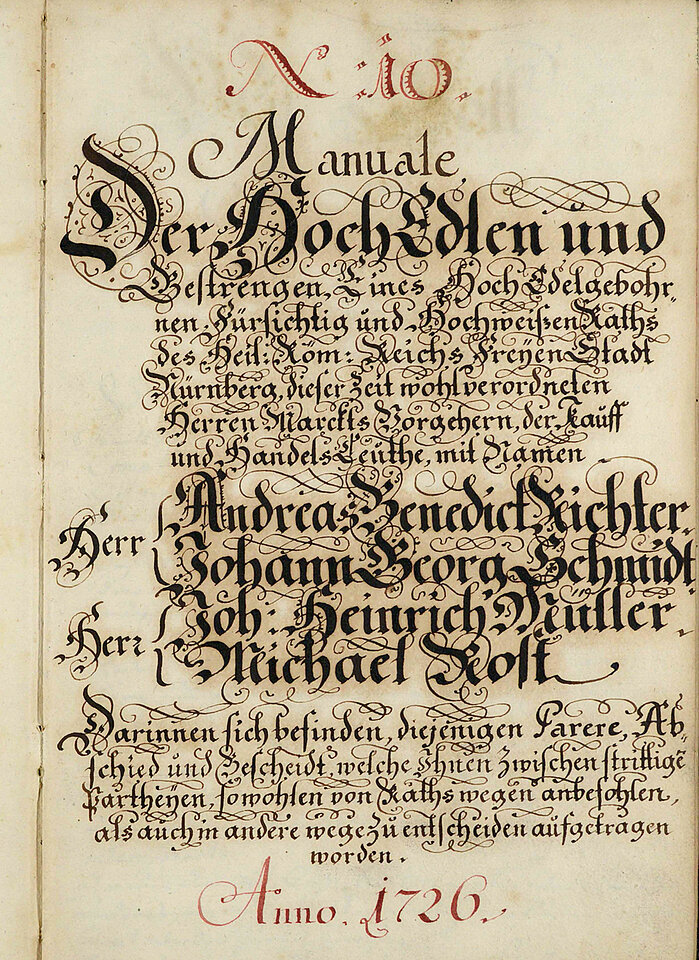 N: 10.
Manuale
Der HochEdlen und
Gestrengen, Eines HochEdelgebohr,
nen, Fürsichtig und Hochweißen Raths
des Heil: Röm: Reichs Freyen Stadt
Nürnberg, dieser Zeit wohlverordneten
Herren Marckts Vorgehern, der Kauff
und Handels Leuthe, mit Namen
Herr { Andreas Benedict Richter.
Johann Georg Schmidt
Herr { Joh: Heinrich Müller.
Michael Rost.
Darinnen sich befinden, diejenigen Parere, Ab,
schied und Bescheidt, welche Ihnen zwischen strittigē
Partheyen, sowohlen von Raths wegen anbefohlen,
als auch in andere wege zu entscheiden aufgetragen
worden.
Anno. 1726.